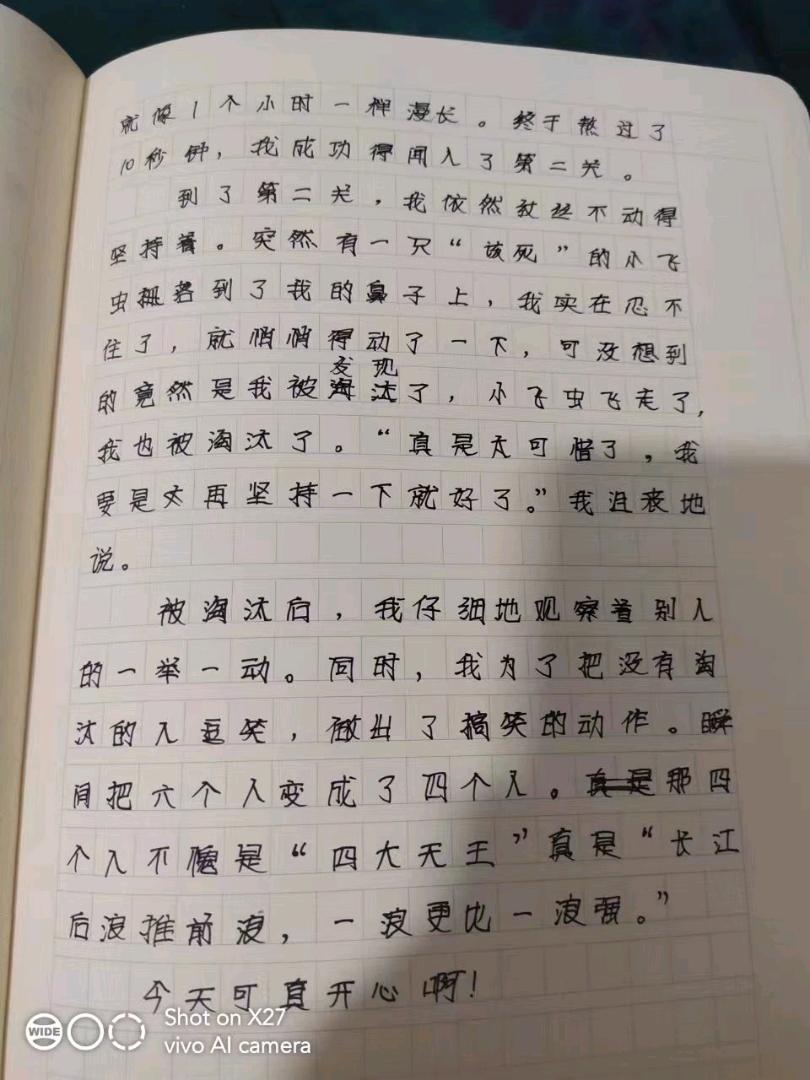 就像1个小时一样漫长。终于熬过了
10秒钟，我成功得闯入了第二关。
到了第二关，我依然纹丝不动得
坚持着。突然有一只“该死”的小飞
虫抓落到了我的鼻子上，我实在忍不
住了，就悄悄得动了一下，可没想到
发现
的竟然是我被淘汰了，小飞虫飞走了，
我也被淘汰了。“真是太可惜了，我
要是太再坚持一下就好了。”我沮丧地
说。
被淘汰后，我仔细地观察着别人
的一举一动。同时，我为了把没有淘
汰的人逗笑，做出了搞笑的动作。瞬
间把六个人变成了四个人。真是那四
个人不愧是“四大天王”真是“长江
后浪推前浪，一浪更比一浪强。”
今天可真开心啊！
Shot on X27
vivo AI camera
WIDE